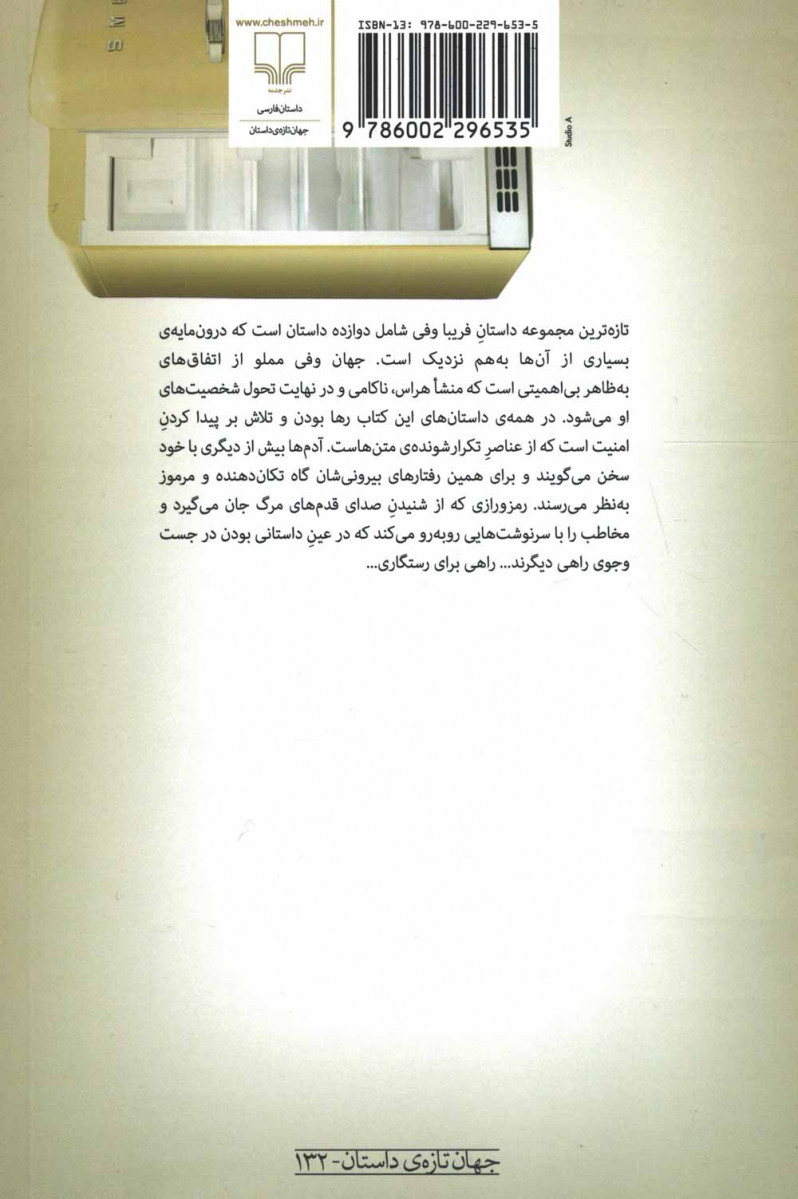 SME
www.cheshmeh.ir
نشر چشمه
داستان فارسی
جهان تازه‌ی داستان
ISBN-13: 978-600-229-653-5
9 786002 296535
Studio A
تازه‌ترین مجموعه داستانِ فریبا وفی شامل دوازده داستان است که درون‌مایه‌ی
بسیاری از آن‌ها به‌هم نزدیک است. جهان وفی مملو از اتفاق‌های
به‌ظاهر بی‌اهمیتی است که منشأ هراس، ناکامی و در نهایت تحول شخصیت‌های
او می‌شود. در همه‌ی داستان‌های این کتاب رها بودن و تلاش بر پیدا کردنِ
امنیت است که از عناصرِ تکرارشونده‌ی متن‌هاست. آدم‌ها بیش از دیگری با خود
سخن می‌گویند و برای همین رفتارهای بیرونی‌شان گاه تکان‌دهنده و مرموز
به‌نظر می‌رسند. رمزورازی که از شنیدنِ صدای قدم‌های مرگ جان می‌گیرد و
مخاطب را با سرنوشت‌هایی روبه‌رو می‌کند که در عینِ داستانی بودن در جست
وجوی راهی دیگرند... راهی برای رستگاری...
جهان تازه‌ی داستان - ۱۳۲